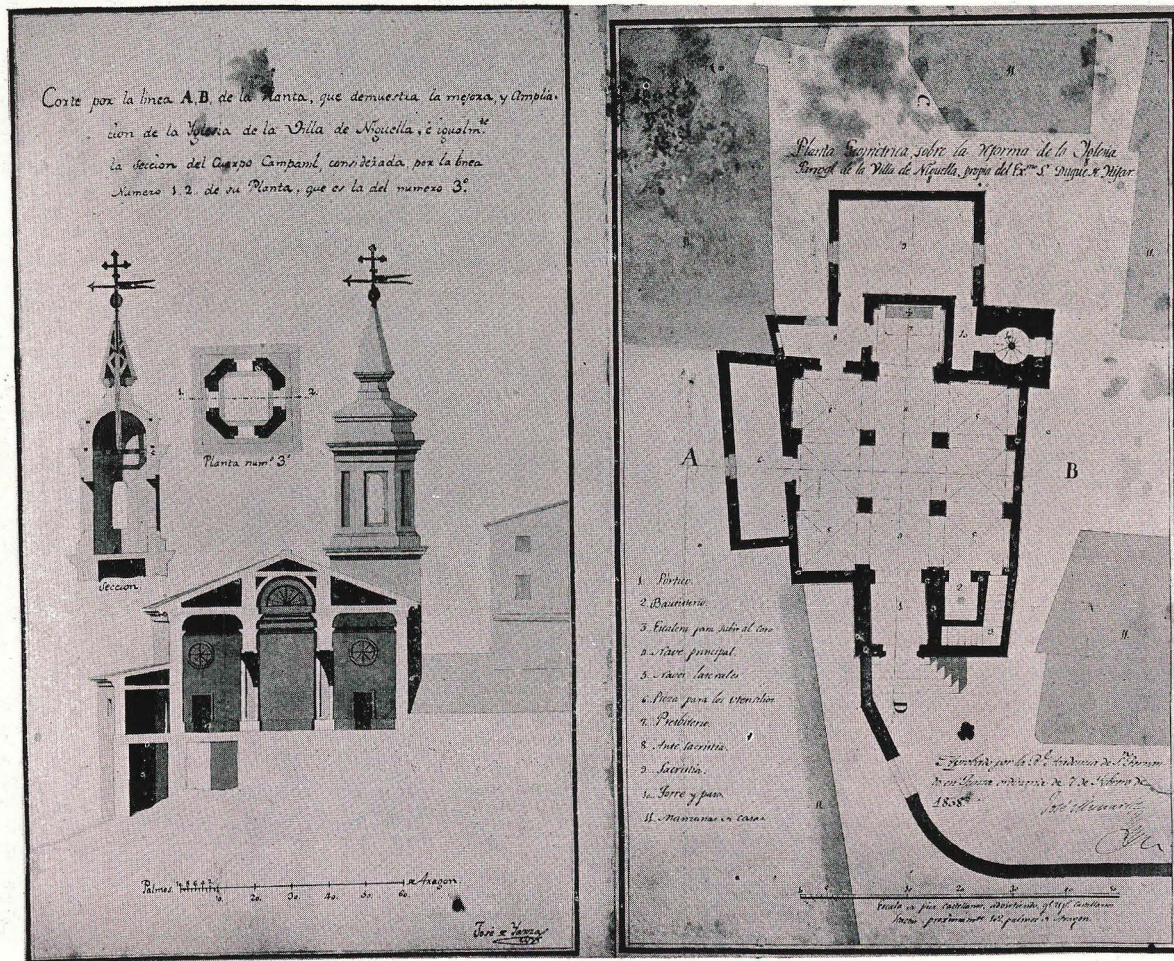 Corte por la linea A.B. de la Planta, que demuestra la mejora, y Amplia-
cion de la Yglesia de la Villa de Niguella, é igualm.te
la Seccion del Cuerpo Campanil, considerada, por la linea
Numero 1. 2. de su Planta, que es la del numero 3º.
1.
2.
Planta num.º 3º
Seccion
Palmos
10. 20. 30. 40. 50. 60
de Aragon.
José de Yarza
Planta Geometrica, sobre la reforma de la Yglesia
Parroql de la Villa de Niguella, propia del Ex.mo S. Duque de Hijar.
A
B
C
D
1. Pórtico.
2. Bautisterio.
3. Escalera para subir al coro
4. Nave principal.
5. Naves laterales
6. Pieza para los utensilios
7. Presbiterio.
8. Ante sacristia.
9. Sacristia.
10. Torre y paso.
11. Manzanas de casas
Aprobado por la Rl. Academia de Sn. Fernan-
do en Junta ordinaria de 7 de Febrero de
1838
Escala de pies castellanos, advirtiendo, qe.
hacen, proximamte. palmos de Aragon.